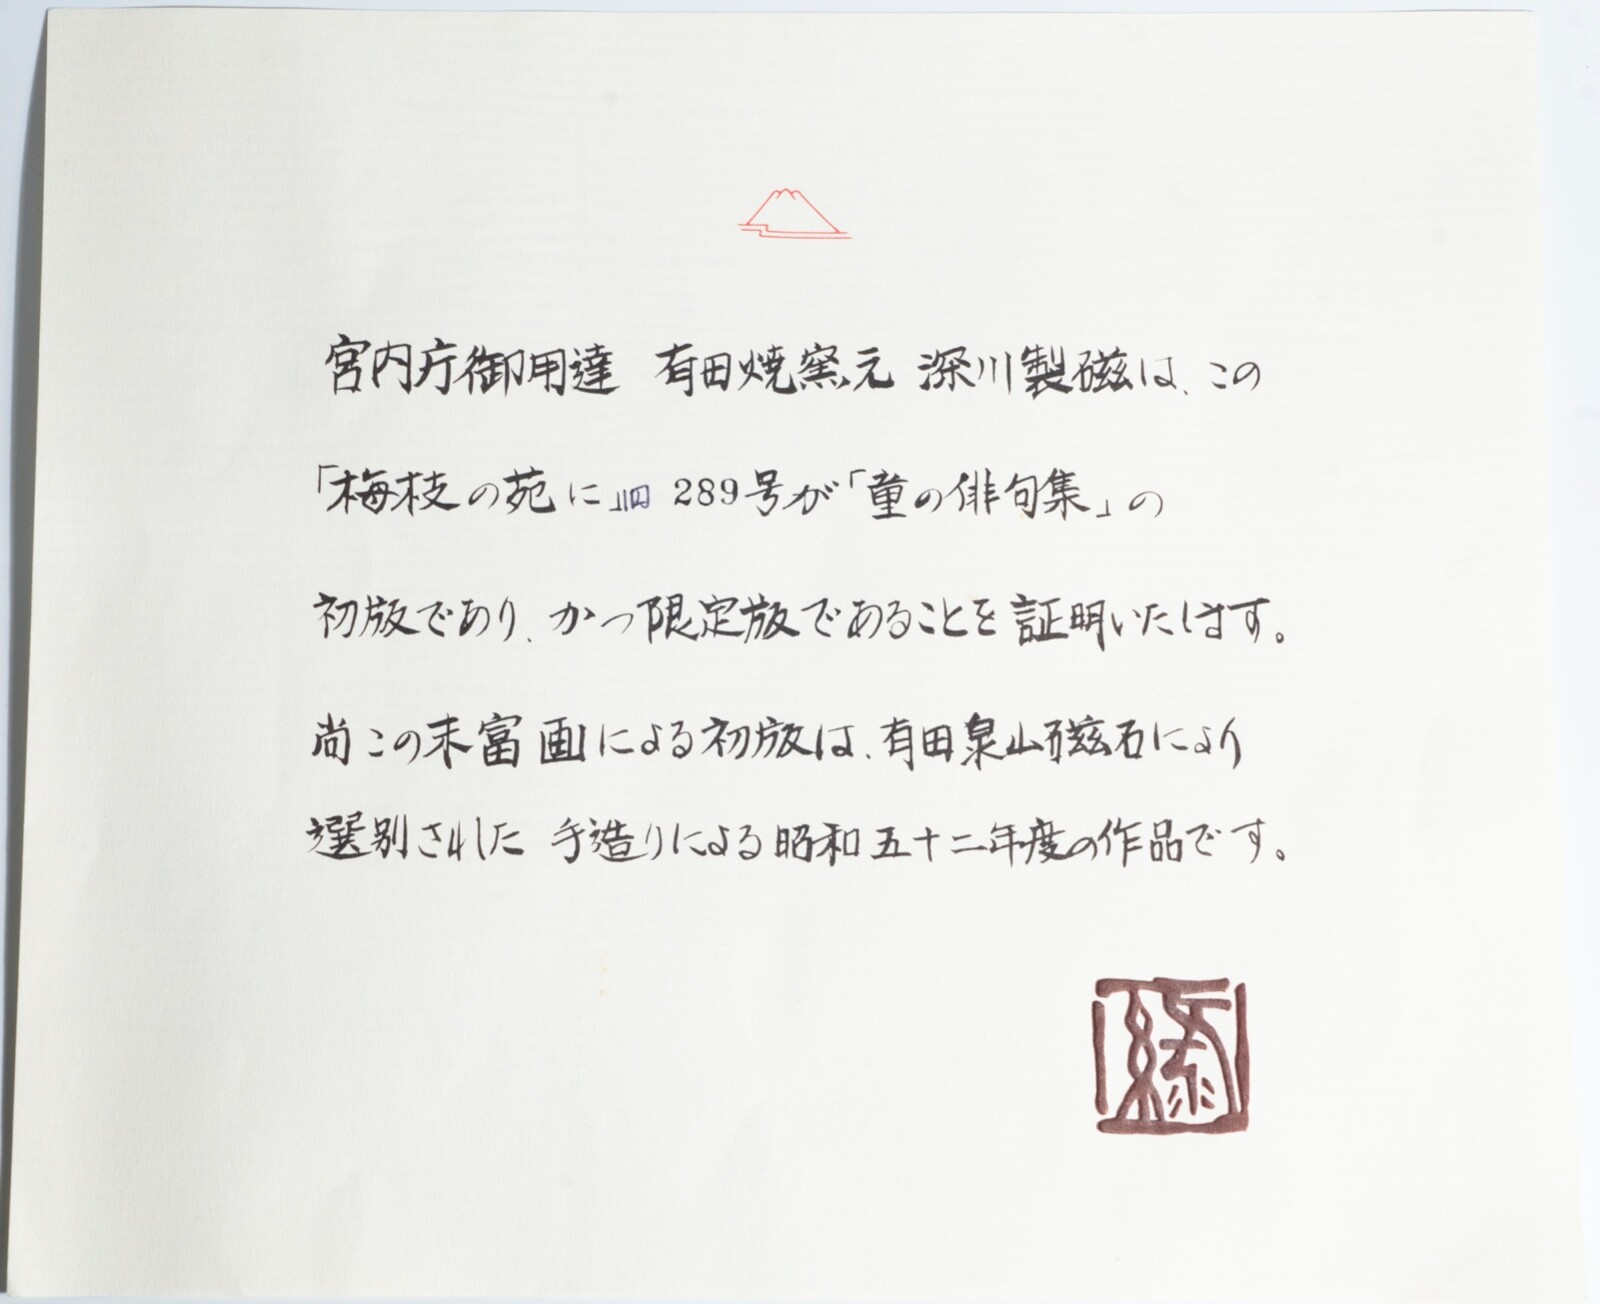 宮内庁御用達 有田焼窯元 深川製磁は、この
「梅枝の苑に」 289号が「童の俳句集」の
初版であり、かつ限定版であることを証明いたします。
尚この末富画による初版は、有田泉山磁石により
選別された 手造りによる昭和五十二年度の作品です。